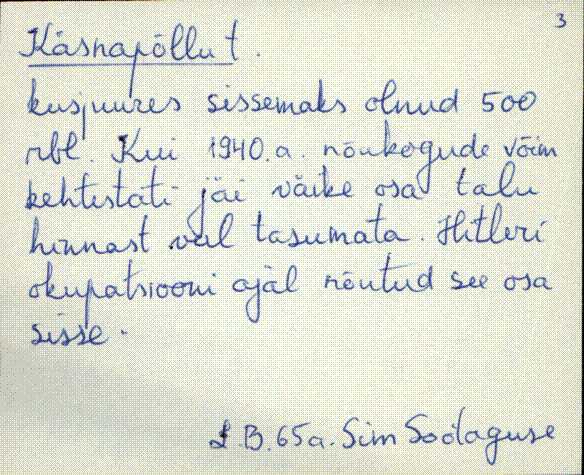 3
Käsnapõllu t.
kusjuures sissemaks olnud 500
rbl. Kui 1940.a. nõukogude võim
kehtestati jäi väike osa talu
hinnast veel tasumata. Hitleri
okupatsiooni ajal nõutud see osa
sisse.
L.B. 65a. Sim Soolaguse